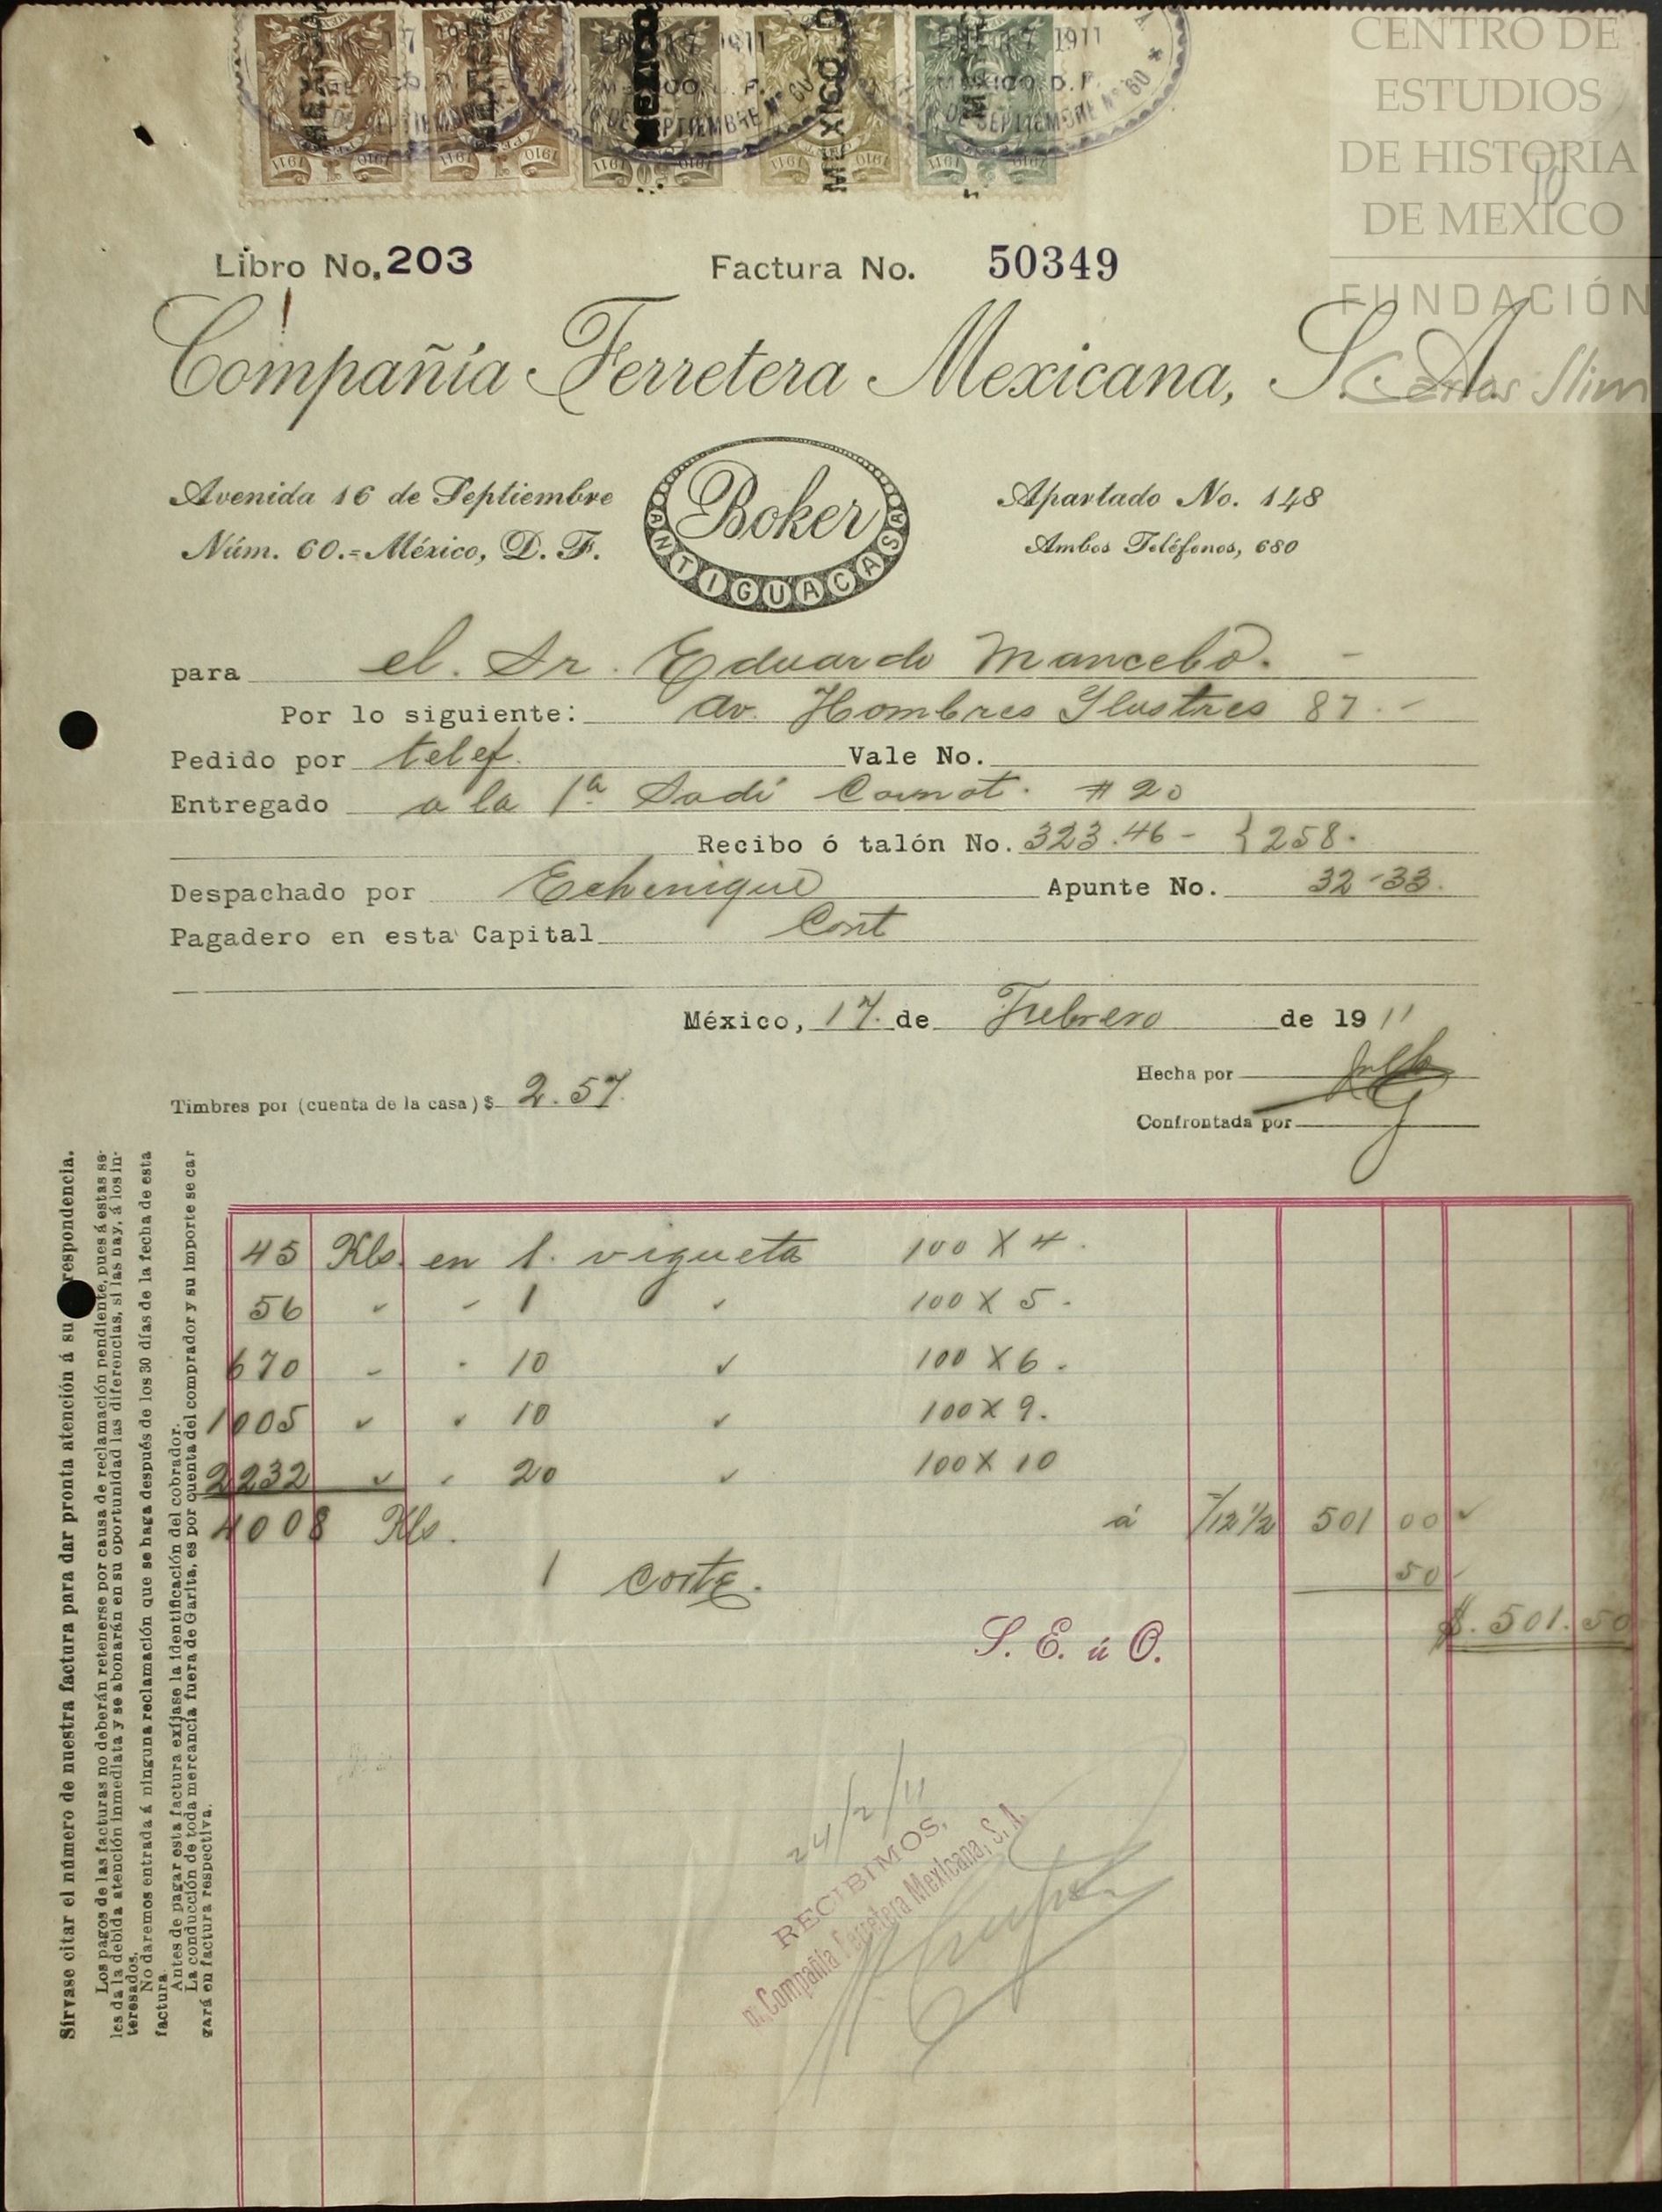 CENTRO DE
ESTUDIOS
DE HISTORIA
DE MEXICO
FUNDACIÓN
Carlos Slim
10
ENE 17 1911
MEXICO D.F.
DE SEPTIEMBRE Nº 60
MEXICO
1910 1911
Libro No. 203 Factura No. 50349
Compañía Ferretera Mexicana, S. A.
Avenida 16 de Septiembre
Núm. 60.=México, D. F.
Boker
ANTIGUA CASA
Apartado No. 148
Ambos Teléfonos, 680
para el. Sr. Eduardo Mancebo. -
Por lo siguiente: Av. Hombres Ilustres 87.-
Pedido por telef. Vale No.
Entregado a la 1ª Sadi Carnot. # 20
Recibo ó talón No. 323.46 - { 258.
Despachado por Echenique Apunte No. 32-33.
Pagadero en esta Capital Cont
México, 17. de Febrero de 1911
Hecha por
Timbres por (cuenta de la casa) $ 2.57.
Confrontada por
45 Kls. en 1. vigueta 100 X 4.
56 " " 1 " 100 X 5.
670 " " 10 " 100 X 6.
1005 " " 10 " 100 X 9.
2232 " " 20 " 100 X 10
4008 Kls. á 12½ 501 00
1 corte. 50
$. 501.50
S. E. ú O.
24/2/11
RECIBIMOS,
p. Compañía Ferretera Mexicana, S. A.
Sírvase citar el número de nuestra factura para dar pronta atención á su respondencia.
Los pagos de las facturas no deberán retenerse por causa de reclamación pendiente, pues á estas se-
les da la debida atención inmediata y se abonarán en su oportunidad las diferencias, si las hay, á los in-
teresados.
No daremos entrada á ninguna reclamación que se haga después de los 30 días de la fecha de esta
factura.
Antes de pagar esta factura exíjase la identificación del cobrador.
La conducción de toda mercancía fuera de Garita, es por cuenta del comprador y su importe se car
gará en factura respectiva.